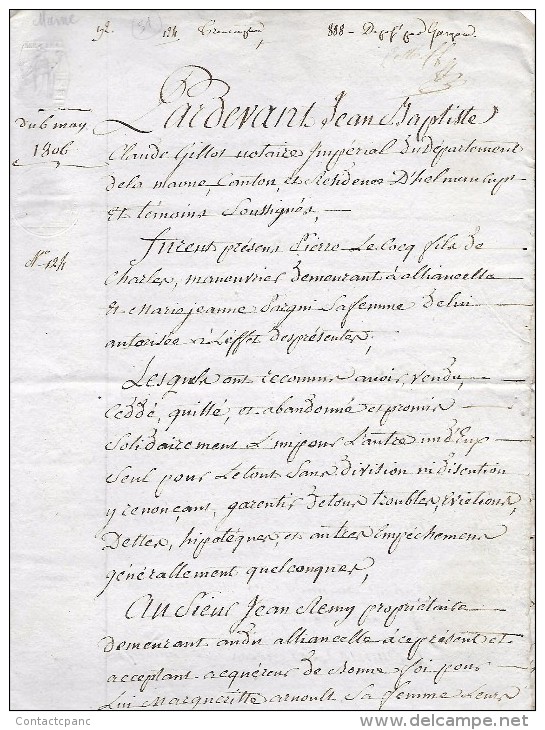 Marne
du 6 may
1806
Pardevant Jean Baptiste
Claude Gillot notaire Impérial du departement
dela marne, Canton, et Residence
Et témoins Soussignés,
furent présens Pierre Le Cocq fils de
Charles, manouvrier demeurant à alliancelle
& Marie jeanne Sa femme de lui
autorisée à L'effet des présentes,
Lesquels ont reconnu avoir, vendu,
Ceddé, quitté, et abandonné et promis
Solidairement L'un pour L'autre un d'Eux
Seul pour Letout Sans division ni discution
y renonçant, garentir de tous troubles, évictions,
Dettes, hipotèques, et autres Empéchemens
générallement quelconques,
Au Sieur Jean Remy propriétaire
demeurant audit alliancelle ace présent et
acceptant acquéreur de Bonne foi pour
Lui Margueritte arnoult Sa femme Leurs
Contactcpanc
delcampe.net